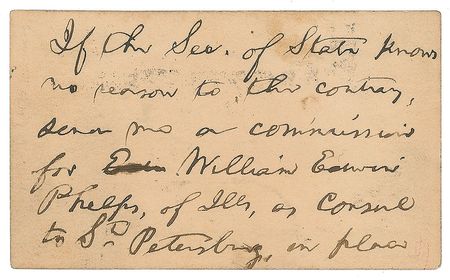 If the Sec. of State knows
no reason to the contrary,
send me a commission
for Edw William Edwin
Phelps, of Ills, as Consul
to St. Petersburg, in place